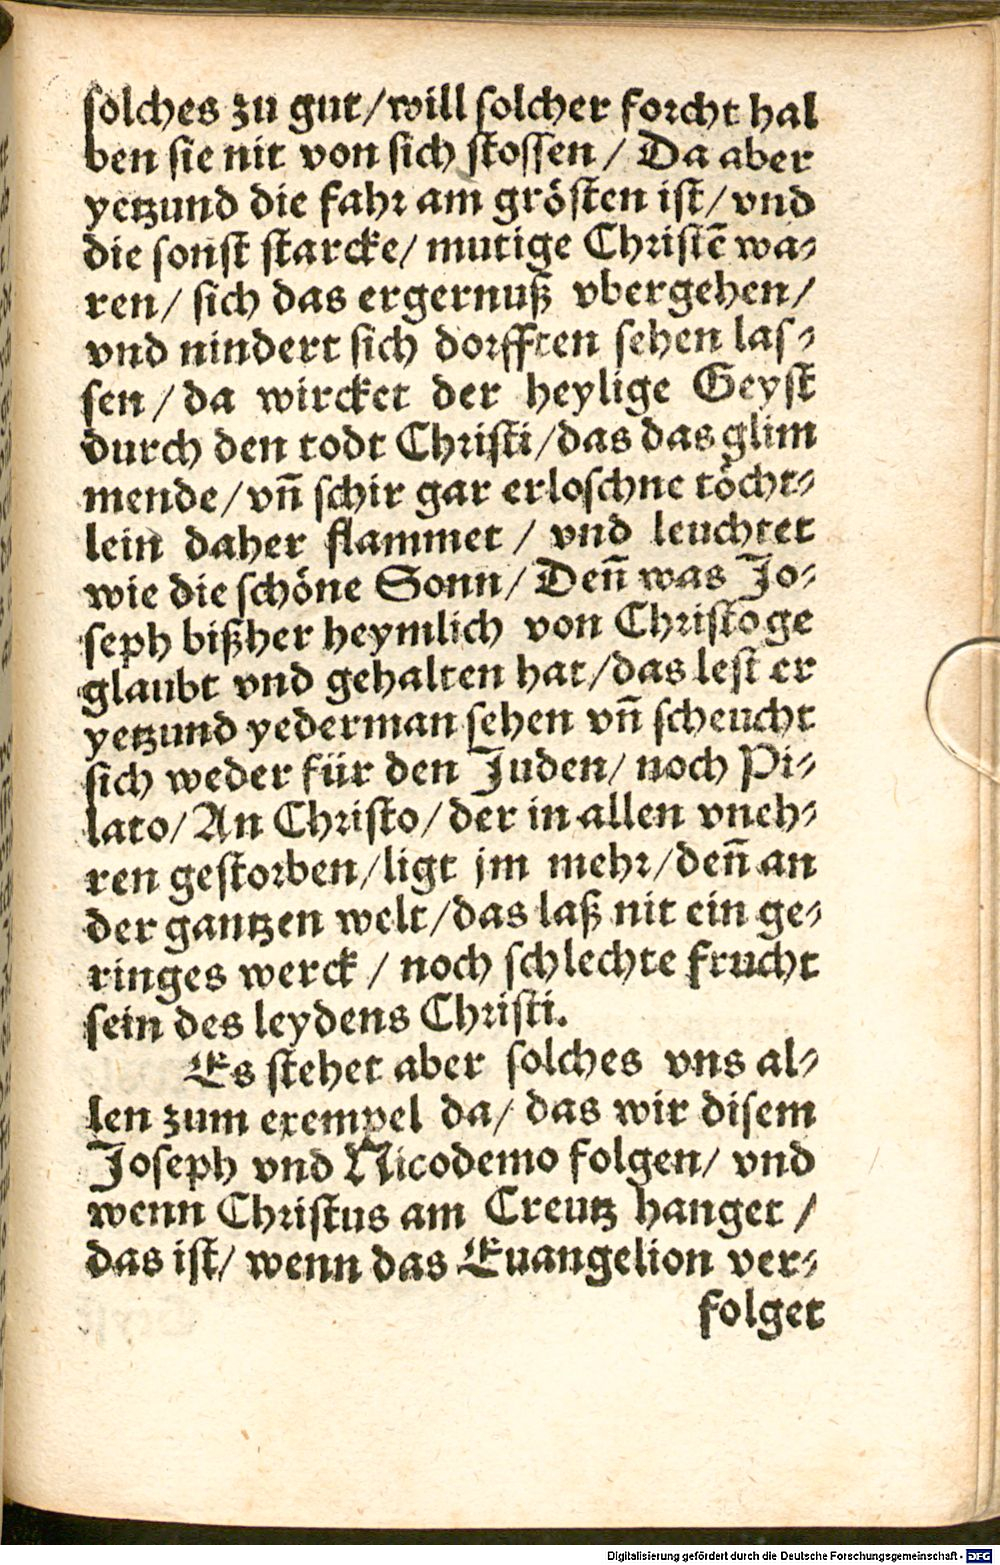 solches zu gut/will solcher forcht hal
ben sie nit von sich stossen / Da aber
yetzund die fahr am grösten ist/ vnd
die sonst starcke/ mutige Christē wa-
ren/ sich das ergernuß vbergehen/
vnd nindert sich dorfften sehen las-
sen / da wircket der heylige Geyst
durch den todt Christi/das das glim
mende/ vñ schir gar erloschne töcht-
lein daher flammet / vnd leuchtet
wie die schöne Sonn/ Deñ was Jo-
seph bißher heymlich von Christo ge
glaubt vnd gehalten hat/das lest er
yetzund yederman sehen vñ scheucht
sich weder für den Juden/ noch Pi-
lato/ An Christo/ der in allen vneh-
ren gestorben/ligt jm mehr/deñ an
der gantzen welt/das laß nit ein ge-
ringes werck / noch schlechte frucht
sein des leydens Christi.
Es stehet aber solches vns al-
len zum exempel da/ das wir disem
Joseph vnd Nicodemo folgen/ vnd
wenn Christus am Creutz hanget /
das ist/ wenn das Euangelion ver-
folget
Digitalisierung gefördert durch die Deutsche Forschungsgemeinschaft - DFG